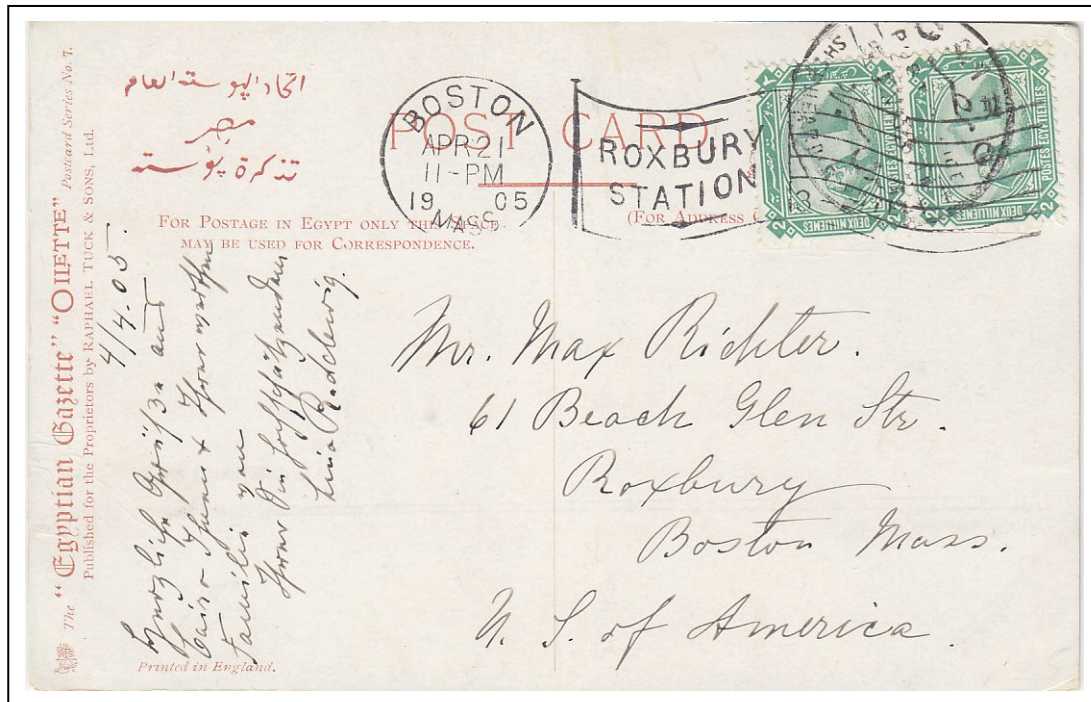 The "Egyptian Gazette" "OILETTE" Postcard Series No. 7.
Published for the Proprietors by RAPHAEL TUCK & SONS, Ltd.
اتحاد البوستة العام
مصر
تذكرة بوستة
POST CARD
FOR POSTAGE IN EGYPT ONLY THIS SPACE
MAY BE USED FOR CORRESPONDENCE.
(FOR ADDRESS
BOSTON
APR 21
11-PM
19 05
MASS.
ROXBURY
STATION
POSTES EGYPTIENNES
DEUX MILLIEMES
2
POSTES EGYPTIENNES
DEUX MILLIEMES
2
4/4.05.
Herzliche Grüße aus
Cairo Ihnen & Ihrer werthen
Familie von
Ihrer Sie hochschätzenden
Lina
Mr. Max Richter.
61 Beach Glen Str.
Roxbury
Boston Mass.
U. S. of America.
Printed in England.